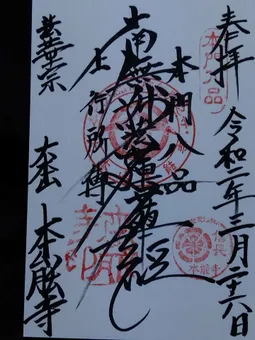 奉拝 令和二年三月二十六日
本門八品
本門八品
南無妙法蓮華経
上行所傳
法華宗 大本山 本能寺
本能寺